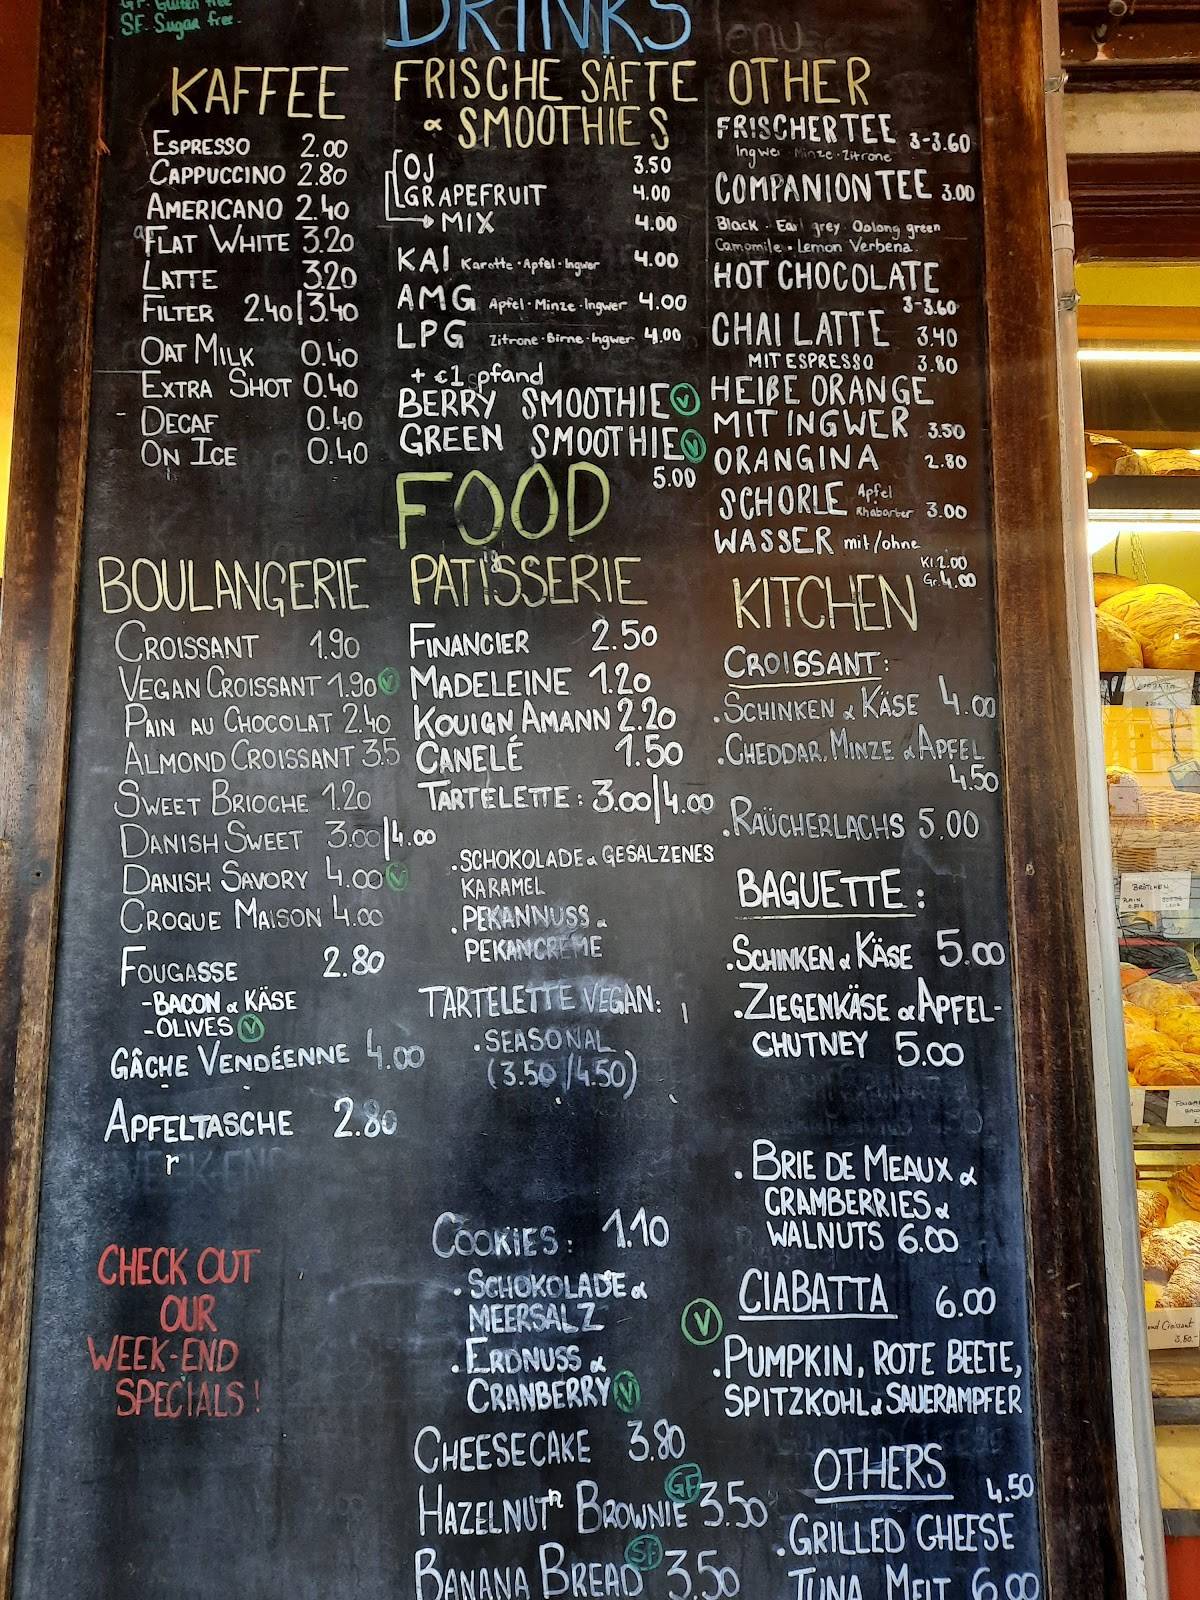 GF. Gluten free
SF. Sugar free.
DRINKS
KAFFEE
ESPRESSO 2.00
CAPPUCCINO 2.80
AMERICANO 2.40
FLAT WHITE 3.20
LATTE 3.20
FILTER 2.40|3.40
OAT MILK 0.40
EXTRA SHOT 0.40
- DECAF 0.40
ON ICE 0.40
FRISCHE SÄFTE
& SMOOTHIES
OJ 3.50
GRAPEFRUIT 4.00
→ MIX 4.00
KAI Karotte·Apfel·Ingwer 4.00
AMG Apfel·Minze·Ingwer 4.00
LPG Zitrone·Birne·Ingwer 4.00
+ €1 pfand
BERRY SMOOTHIE V
GREEN SMOOTHIE V
5.00
OTHER
FRISCHER TEE 3-3.60
Ingwer Minze·Zitrone
COMPANION TEE 3.00
Black · Earl grey Oolong green
Camomile · Lemon Verbena
HOT CHOCOLATE
3-3.60
CHAI LATTE 3.40
MIT ESPRESSO 3.80
HEIßE ORANGE
MIT INGWER 3.50
ORANGINA 2.80
SCHORLE Apfel
Rhabarber 3.00
WASSER mit/ohne
Kl.2.00
Gr.4.00
FOOD
BOULANGERIE
CROISSANT 1.90
VEGAN CROISSANT 1.90 V
PAIN AU CHOCOLAT 2.40
ALMOND CROISSANT 3.5
SWEET BRIOCHE 1.20
DANISH SWEET 3.00|4.00
DANISH SAVORY 4.00 V
CROQUE MAISON 4.00
FOUGASSE 2.80
-BACON & KÄSE
-OLIVES V
GÂCHE VENDÉENNE 4.00
APFELTASCHE 2.80
CHECK OUT
OUR
WEEK-END
SPECIALS!
PATISSERIE
FINANCIER 2.50
MADELEINE 1.20
KOUIGN AMANN 2.20
CANELÉ 1.50
TARTELETTE: 3.00|4.00
.SCHOKOLADE & GESALZENES
KARAMEL
.PEKANNUSS &
PEKANCREME
TARTELETTE VEGAN:
.SEASONAL
(3.50/4.50)
COOKIES: 1.10
.SCHOKOLADE &
MEERSALZ
.ERDNUSS &
CRANBERRY V
CHEESECAKE 3.80
HAZELNUT BROWNIE GF 3.50
BANANA BREAD SF 3.50
KITCHEN
CROISSANT:
.SCHINKEN & KÄSE 4.00
.CHEDDAR, MINZE & APFEL
4.50
.RAÜCHERLACHS 5.00
BAGUETTE:
.SCHINKEN & KÄSE 5.00
.ZIEGENKÄSE & APFEL-
CHUTNEY 5.00
.BRIE DE MEAUX &
CRAMBERRIES &
WALNUTS 6.00
CIABATTA 6.00
V
.PUMPKIN, ROTE BEETE,
SPITZKOHL & SAUERAMPFER
OTHERS
4.50
.GRILLED CHEESE
TUNA MELT 6.00
BRÖTCHEN